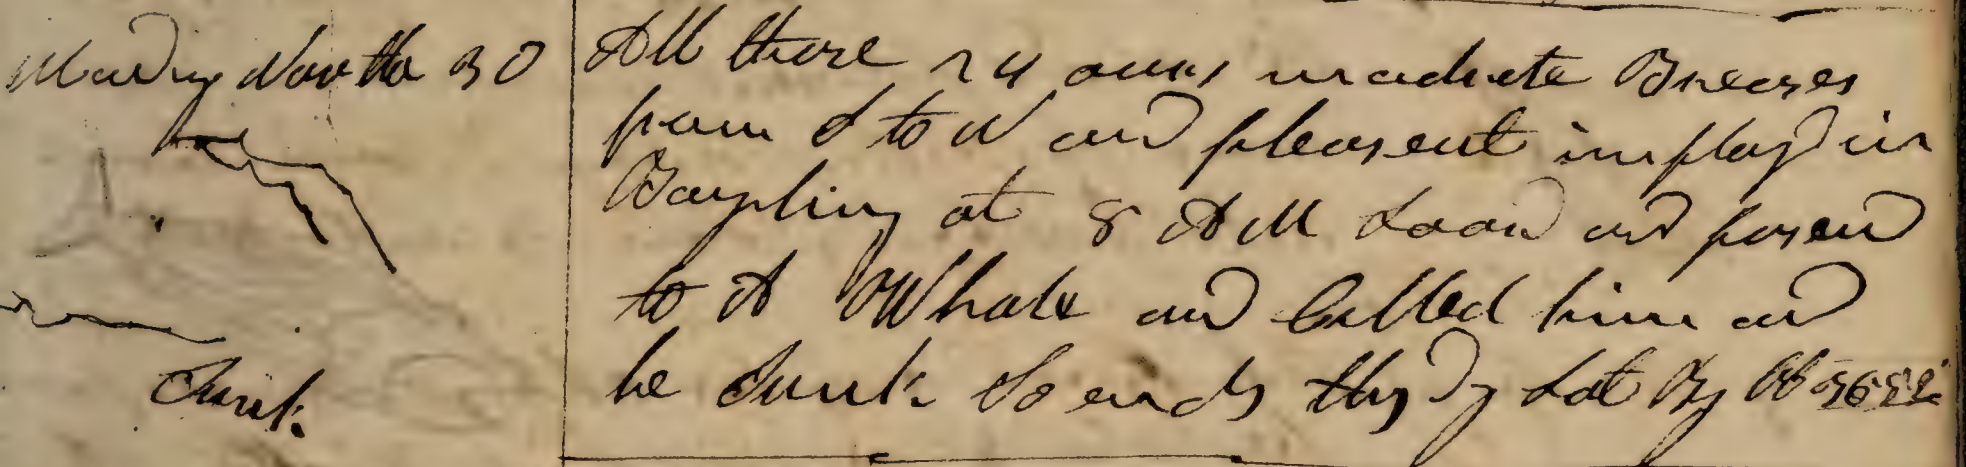 Monday Nov the 30
Sunk
All these 24 ours moderate Breezes
from S to W and pleasent imployd in
Boyling at 8 AM Loard and
to A Whale and Cilled him and
he Sunk So ends this Dy Lat By Ob